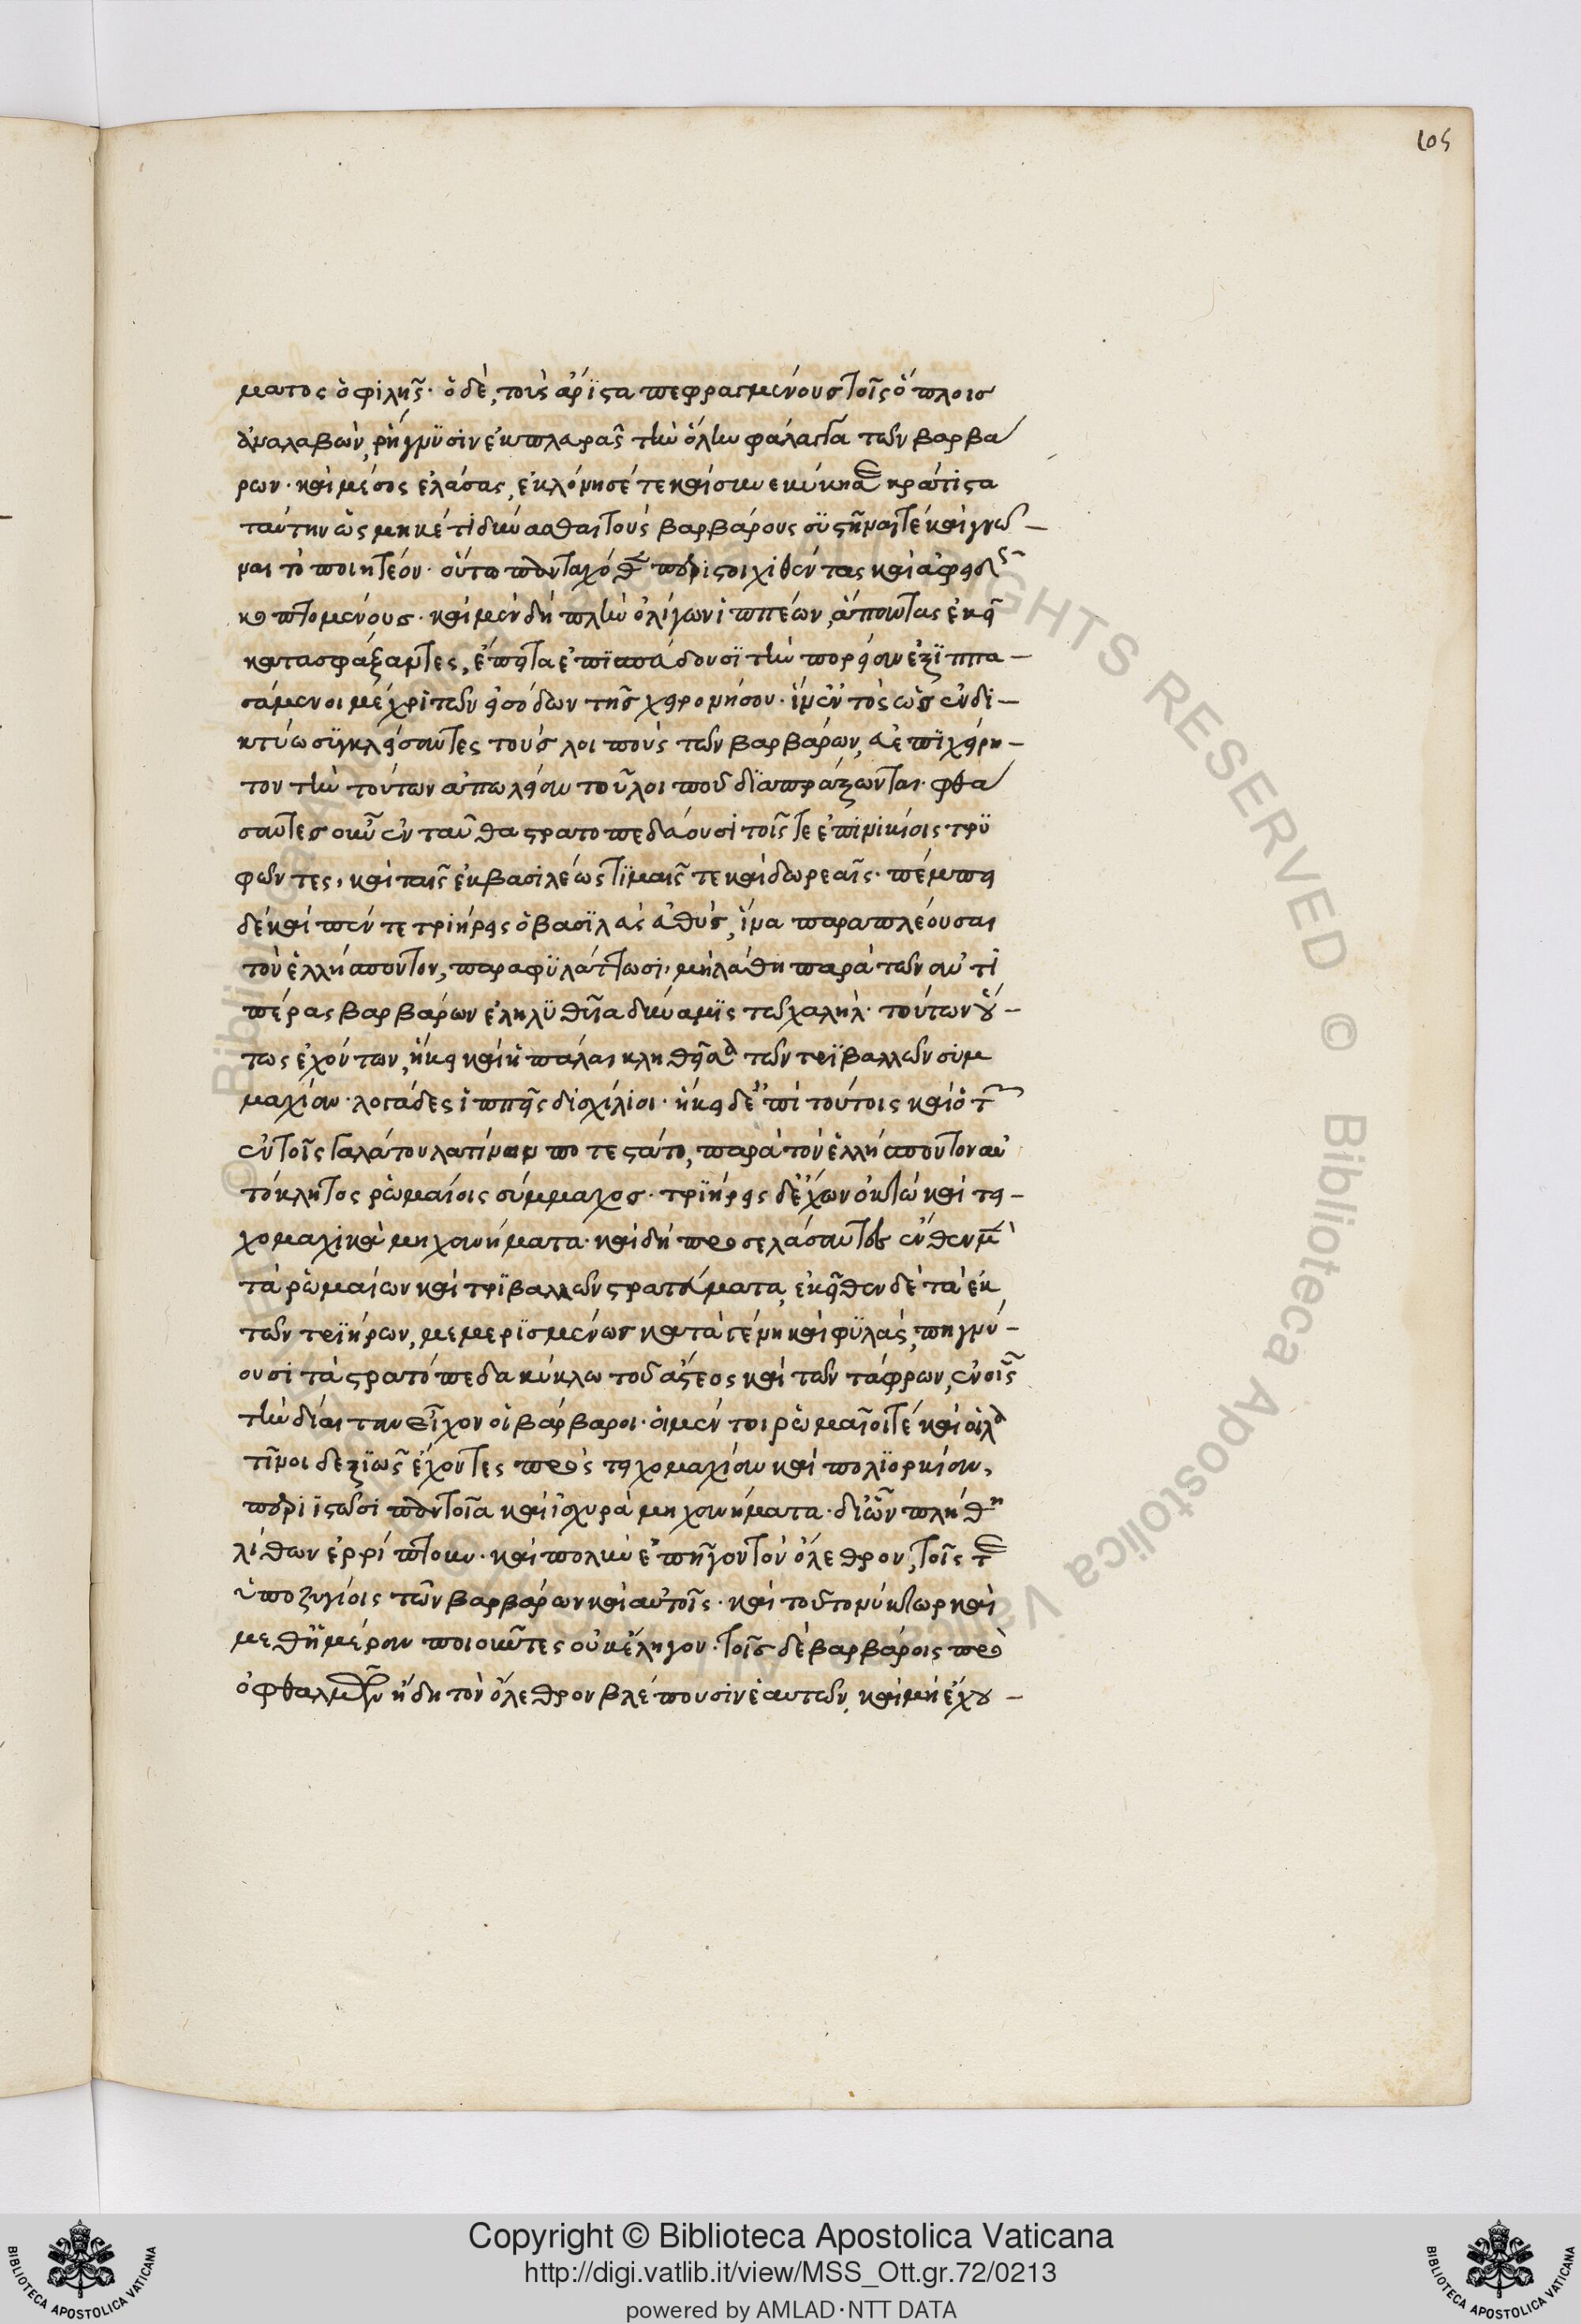 105
ματος ὁ φιλῆς· ὁ δὲ, τοὺς ἄριστα πεφραγμένους τοῖς ὅπλοις
ἀναλαβὼν, ῥήγνυσιν ἐκ πλαρᾶς τὴν ὅλην φάλαγγα τῶν βαρβά
ρων· καὶ μέσος ἐλάσας, ἐκλόνησέ τε καὶ συνεκύκησε κράτιστα
ταύτην ὡς μηκέτι δύνασθαι τοὺς βαρβάρους συστῆναί τε καὶ γνῶ-
ναι τὸ ποιητέον· οὕτω πανταχόθεν περιστοιχιθέντας καὶ ἀφειδῶς
κοπτομένους· καὶ μὲν δὴ πλὴν ὀλίγων ἱππέων, ἅπαντας ἐκεῖ
κατασφάξαντες, ἔπειτα ἐπισπεύδουσι τὴν πορείαν ἐξιππα-
σάμενοι μέχρι τῶν εἰσόδων τῆς χερονήσου· ἵν' ἐντὸς ὡς ἐν δι-
κτύω συγκλείσαντες τοὺς λοιποὺς τῶν βαρβάρων, εὐεπιχείρη-
τον τὴν τούτων ἀπωλείαν τοῦ λοιποῦ διαπράξωνται· φθά
σαντες οὖν ἐνταῦθα στρατοπεδεύουσι τοῖς τε ἐπινικίοις τρυ
φῶντες, καὶ ταῖς ἐκ βασιλέως τιμαῖς τε καὶ δωρεαῖς· πέμπει
δὲ καὶ πέντε τριήρεις ὁ βασιλεὺς εὐθὺς, ἵνα παραπλέουσαι
τὸν ἑλλήσποντον, παραφυλάττωσι, μὴ λάθη παρὰ τῶν ἀντι
πέρας βαρβάρων ἐληλυθυῖα δύναμις τῶ χαλήλ· τούτων οὕ-
τως ἐχόντων, ἧκε καὶ ἡ πάλαι κληθεῖσα τῶν τριβαλλῶν συμ
μαχίαν· λογάδες ἱππεῖς δισχίλιοι· ἧκε δ' ἐπὶ τούτοις καὶ ὁ τῶν
ἐν τοῖς Γαλάτου λατίνων ποτεστάτο, παρὰ τὸν ἑλλήσποντον αὐ
τόκλητος ῥωμαίοις σύμμαχος· τριήρεις δ' ἔχων ὀκτὼ καὶ τει-
χομαχικὰ μηχανήματα· καὶ δὴ προσελάσαντες ἔνθεν μὲν
τὰ ῥωμαίων καὶ τριβαλλῶν στρατεύματα, ἐκεῖθεν δὲ τὰ ἐκ
τῶν τριήρων, μεμερισμένως κατὰ γένη καὶ φυλὰς, πηγνύ-
ουσι τὰ στρατόπεδα κύκλω τοῦ ἄστεος καὶ τῶν τάφρων, ἐν οἷς
τὴν δίαιταν εἶχον οἱ βάρβαροι· οἱ μέντοι ῥωμαῖοί τε καὶ οἱ λα
τῖνοι δεξιῶς ἔχοντες πρὸς τειχομαχίαν καὶ πολιορκίαν,
περιιστῶσι παντοῖα καὶ ἰσχυρὰ μηχανήματα· δι' ὧν πλήθη
λίθων ἐρρίπτουν· καὶ πολὺν ἐπῆγον τὸν ὄλεθρον, τοῖς τε
ὑποζυγίοις τῶν βαρβάρων καὶ αὐτοῖς· καὶ τοῦτο νύκτωρ καὶ
μεθημέραν ποιοῦντες οὐκ ἔληγον· τοῖς δὲ βαρβάροις πρὸ
ὀφθαλμῶν ἤδη τὸν ὄλεθρον βλέπουσιν ἑαυτῶν, καὶ μὴ ἔχου-
© Biblioteca Apostolica Vaticana ALL RIGHTS RESERVED © Biblioteca Apostolica Vaticana
BIBLIOTECA APOSTOLICA VATICANA
Copyright © Biblioteca Apostolica Vaticana
http://digi.vatlib.it/view/MSS_Ott.gr.72/0213
powered by AMLAD·NTT DATA
BIBLIOTECA APOSTOLICA VATICANA